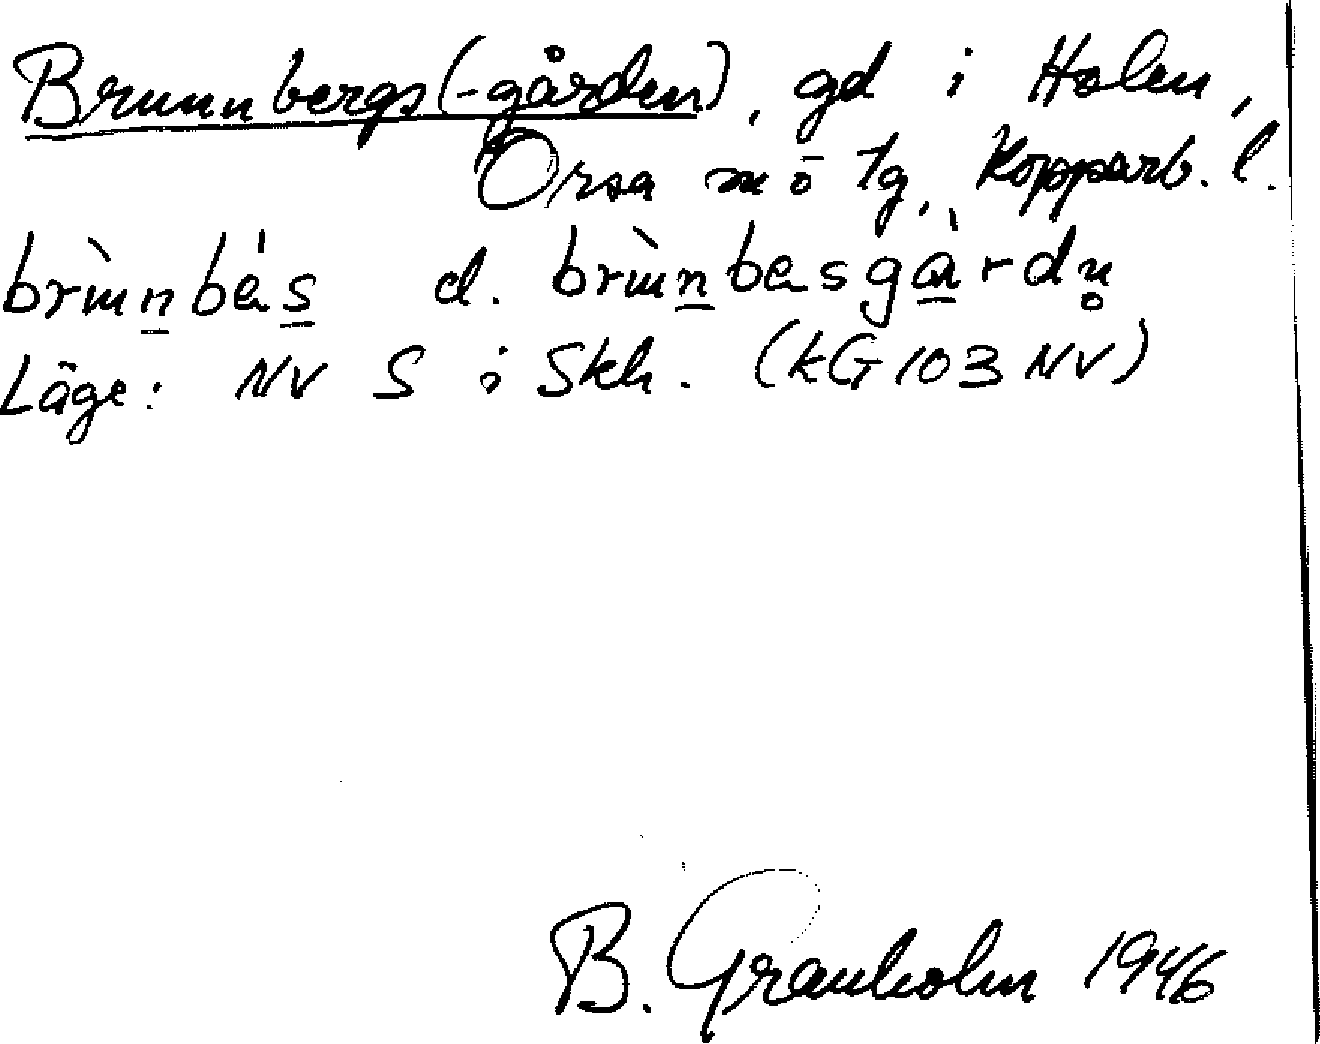 Brunnbergs(-gården), gd i Holen,
Orsa sn o tg, Kopparb. l.
brùn̠bés̠ d. brùn̠besgà̠rdn̥
Läge: NV S i Skh. (kG 103 NV)
B. Granholm 1946